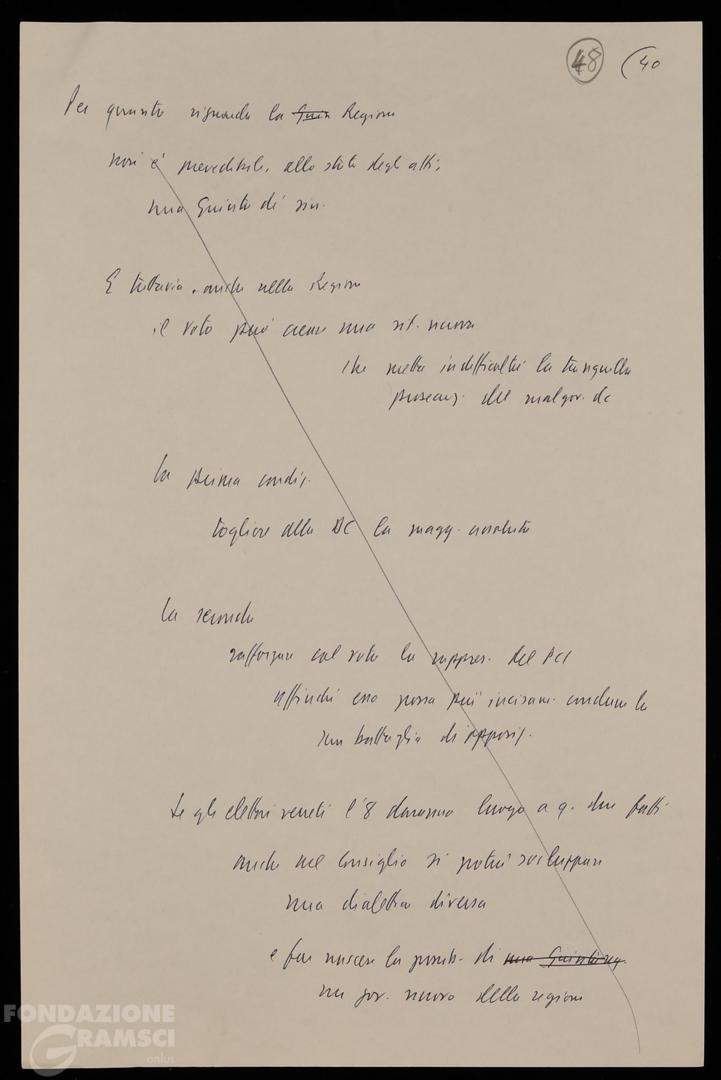 48 (40
Per quanto riguarda la Giun Regione
non è prevedibile, allo stato degli atti,
una Giunta di sin.
E tuttavia, anche nella Regione
il voto può creare una sit. nuova
che metta in difficoltà la tranquilla
prosecuz. del malgov. dc
La prima condiz.
togliere alla DC la magg. assoluta
La seconda
rafforzare col voto la rappres. del PCI
affinché esso possa più incisam. condurre la
sua battaglia di opposiz.
Se gli elettori veneti l'8 daranno luogo a q. due fatti
anche nel Consiglio si potrà sviluppare
una dialettica diversa
e far nascere la possib. di una Giunta
un gov. nuovo della regione
FONDAZIONE
GRAMSCI
onlus